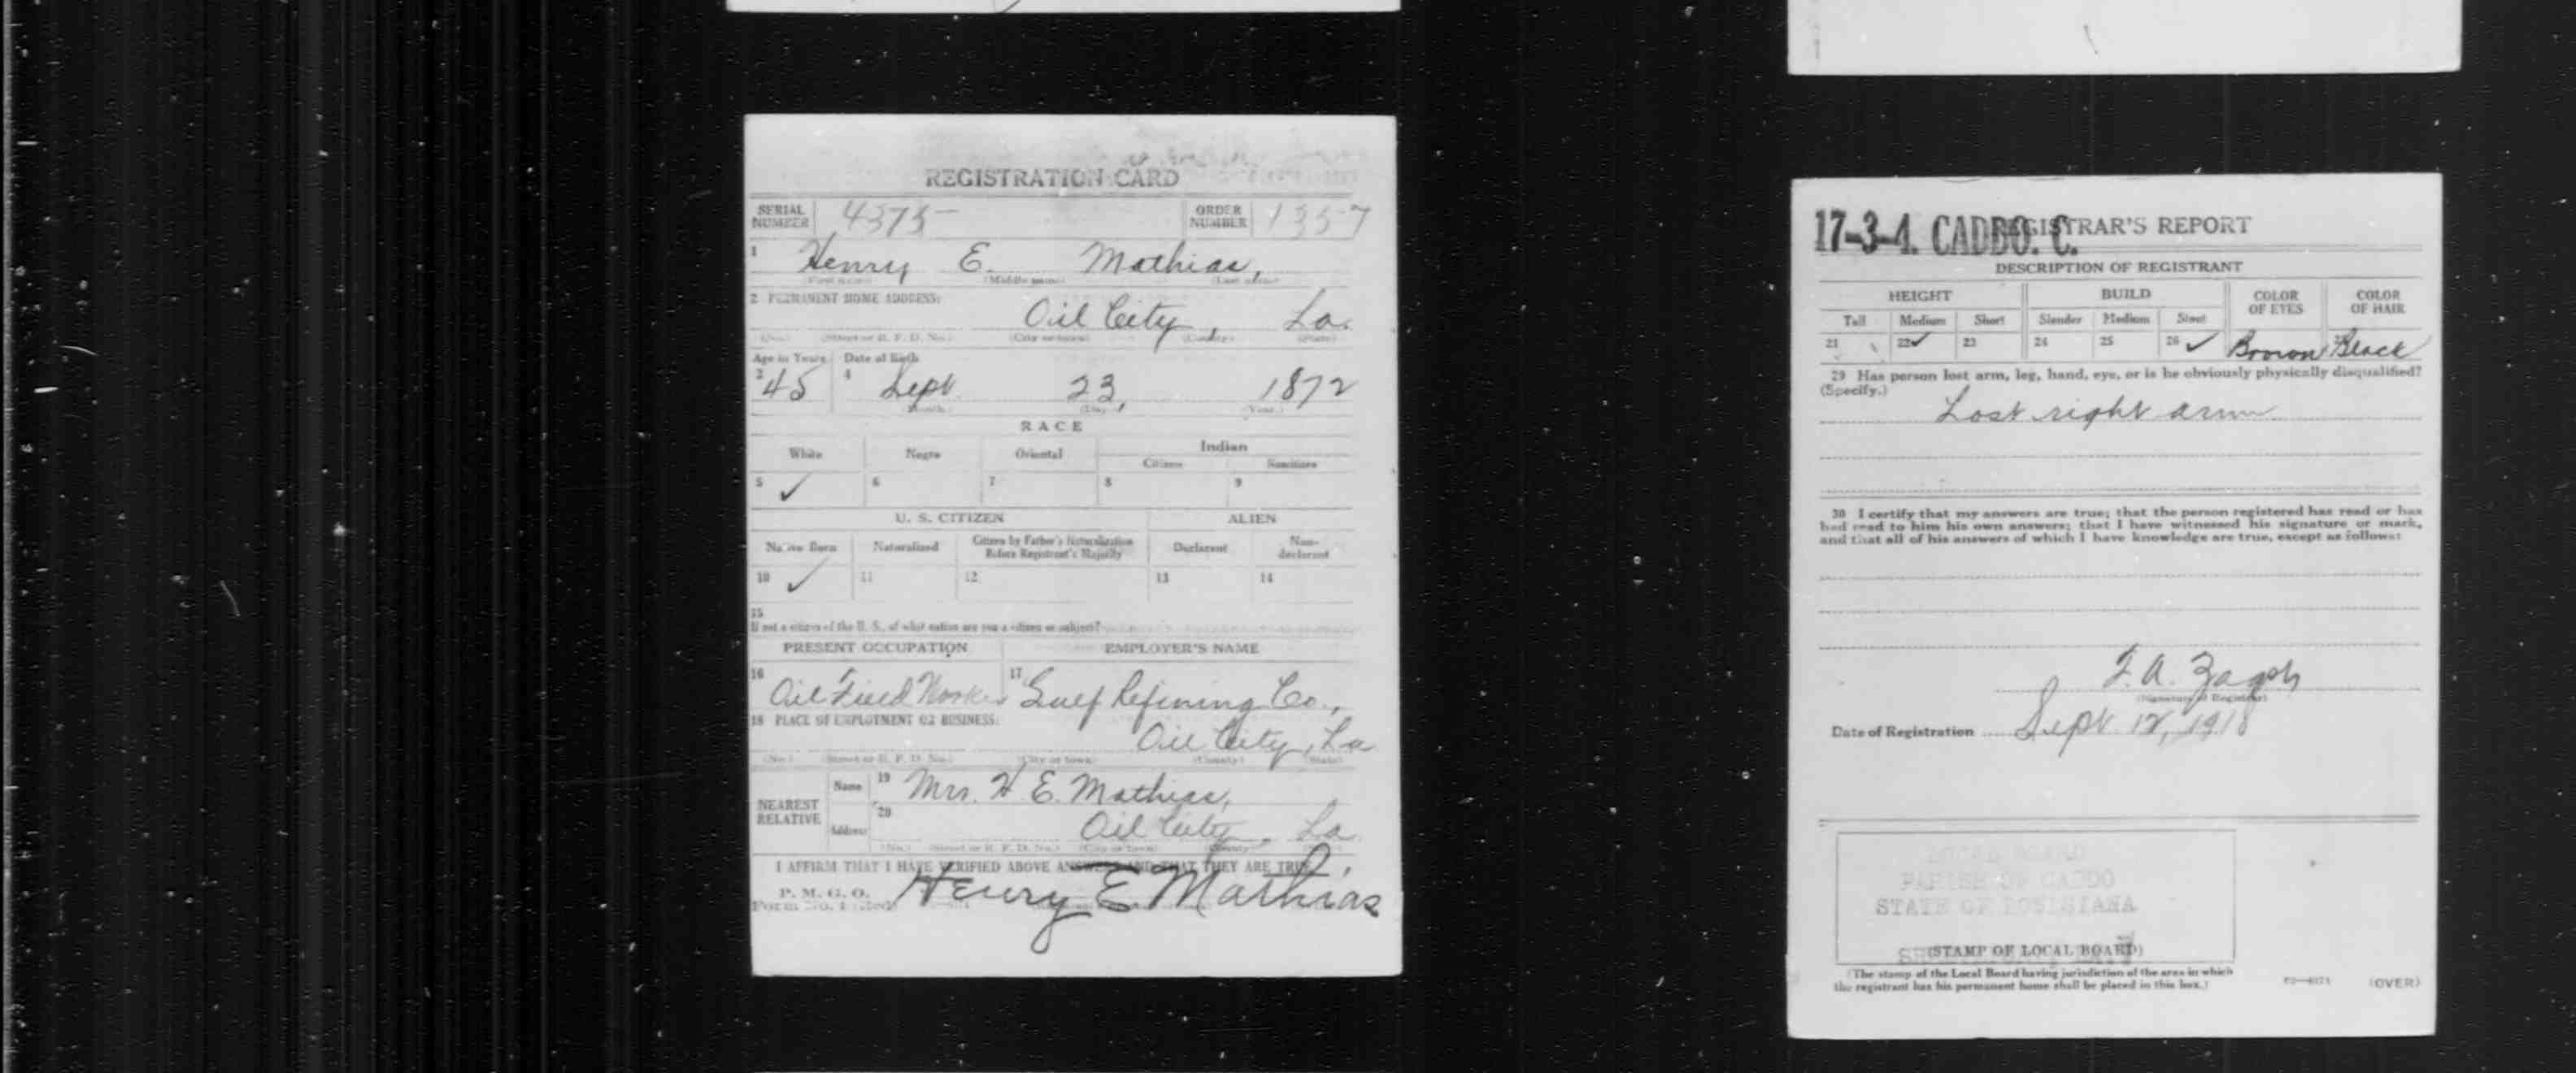 REGISTRATION CARD
SERIAL NUMBER 4375 ORDER NUMBER 1357
1 Henry E. Mathias,
(First name) (Middle name) (Last name)
2 PERMANENT HOME ADDRESS:
Oil City, La.
(No.) (Street or R. F. D. No.) (City or town) (County) (State)
Age in Years Date of Birth
3 45 4 Sept. 23, 1872
(Month.) (Day.) (Year.)
RACE
White Negro Oriental Indian
Citizen Noncitizen
5 ✓ 6 7 8 9
U. S. CITIZEN ALIEN
Native Born Naturalized Citizen by Father's Naturalization Before Registrant's Majority Declarant Non-declarant
10 ✓ 11 12 13 14
15
If not a citizen of the U. S., of what nation are you a citizen or subject?
PRESENT OCCUPATION EMPLOYER'S NAME
16 Oil Field Worker 17 Gulf Refining Co.,
18 PLACE OF EMPLOYMENT OR BUSINESS:
Oil City, La
(No.) (Street or R. F. D. No.) (City or town) (County) (State)
NEAREST RELATIVE Name 19 Mrs. H E. Mathias,
Address 20 Oil City, La.
(No.) (Street or R. F. D. No.) (City or town) (County) (State)
I AFFIRM THAT I HAVE VERIFIED ABOVE ANSWERS AND THAT THEY ARE TRUE
P. M. G. O.
Form No. 1 Henry E Mathias
17-3-4. CADDO. C.
REGISTRAR'S REPORT
DESCRIPTION OF REGISTRANT
HEIGHT BUILD COLOR OF EYES COLOR OF HAIR
Tall Medium Short Slender Medium Stout
21 22 ✓ 23 24 25 26 ✓ Brown Black
29 Has person lost arm, leg, hand, eye, or is he obviously physically disqualified?
(Specify.) Lost right arm
30 I certify that my answers are true; that the person registered has read or has
had read to him his own answers; that I have witnessed his signature or mark,
and that all of his answers of which I have knowledge are true, except as follows:
(Signature of Registrar)
Date of Registration Sept. 12, 1918
LOCAL BOARD
PARISH OF CADDO
STATE OF LOUISIANA
(STAMP OF LOCAL BOARD)
(The stamp of the Local Board having jurisdiction of the area in which
the registrant has his permanent home shall be placed in this box.)
(OVER)